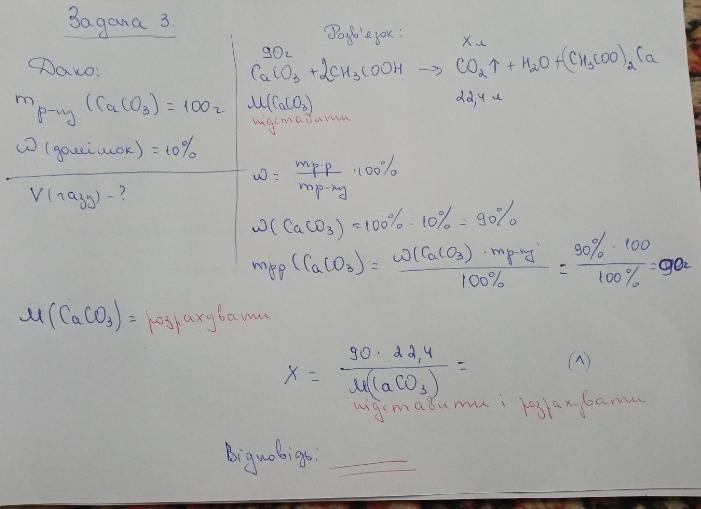 Задача 3
Дано:
m р-ну (CaCO₃) = 100г
ω (домішок) = 10%
V(газу) - ?
Розв'язок:
90г
X л
CaCO₃ + 2CH₃COOH → CO₂↑ + H₂O + (CH₃COO)₂Ca
M(CaCO₃)
22,4 л
підставити
ω = mр.р / mр-ну · 100%
ω(CaCO₃) = 100% - 10% = 90%
mрр (CaCO₃) = ω(CaCO₃) · mр-ну / 100% = 90% · 100 / 100% = 90г
M(CaCO₃) = розрахувати
X = 90 · 22,4 / M(CaCO₃) = (л)
підставити і розрахувати
Відповідь: